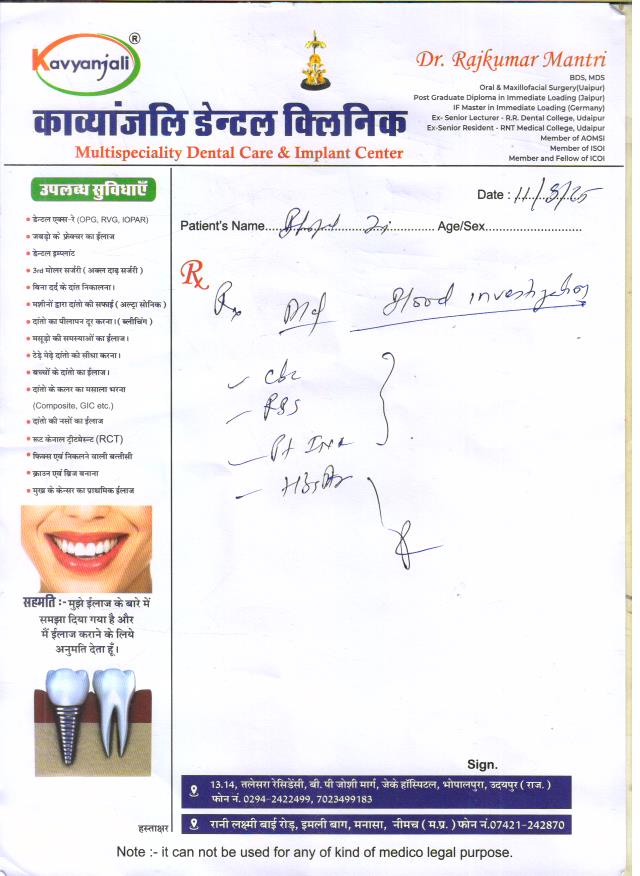 Kavyanjali ®
काव्यांजलि डेन्टल क्लिनिक
Multispeciality Dental Care & Implant Center
Dr. Rajkumar Mantri
BDS, MDS
Oral & Maxillofacial Surgery(Uaipur)
Post Graduate Diploma in Immediate Loading (Jaipur)
IF Master in Immediate Loading (Germany)
Ex- Senior Lecturer - R.R. Dental College, Udaipur
Ex-Senior Resident - RNT Medical College, Udaipur
Member of AOMSI
Member of ISOI
Member and Fellow of ICOI
उपलब्ध सुविधाएँ
• डेन्टल एक्स-रे (OPG, RVG, IOPAR)
• जबड़ो के फ्रेक्चर का ईलाज
• डेन्टल इम्प्लांट
• 3rd मोलर सर्जरी ( अक्ल दाढ़ सर्जरी )
• बिना दर्द के दांत निकालना।
• मशीनों द्वारा दांतो की सफाई ( अल्ट्रा सोनिक )
• दांतो का पीलापन दूर करना। ( ब्लीचिंग )
• मसूड़ो की समस्याओं का ईलाज।
• टेड़े मेड़े दांतो को सीधा करना।
• बच्चों के दांतो का ईलाज।
• दांतो के कलर का मसाला भरना
(Composite, GIC etc.)
• दांतो की नसों का ईलाज
• रूट केनाल ट्रीटमेन्ट (RCT)
• फिक्स एवं निकलने वाली बत्तीसी
• क्राउन एवं ब्रिज बनाना
• मुख के केन्सर का प्राथमिक ईलाज
सहमति :- मुझे ईलाज के बारे में
समझा दिया गया है और
मैं ईलाज कराने के लिये
अनुमति देता हूँ।
हस्ताक्षर
Date : 11/8/25
Patient's Name.......... Age/Sex..........
Rx
Rx Blood investigation
CBC
RBS
Pt INR
HBsAg
Sign.
13.14, तलेसरा रेसिडेंसी, बी. पी जोशी मार्ग, जेके हॉस्पिटल, भोपालपुरा, उदयपुर ( राज. )
फोन नं. 0294-2422499, 7023499183
रानी लक्ष्मी बाई रोड़, इमली बाग, मनासा, नीमच ( म.प्र. ) फोन नं.07421-242870
Note :- it can not be used for any of kind of medico legal purpose.